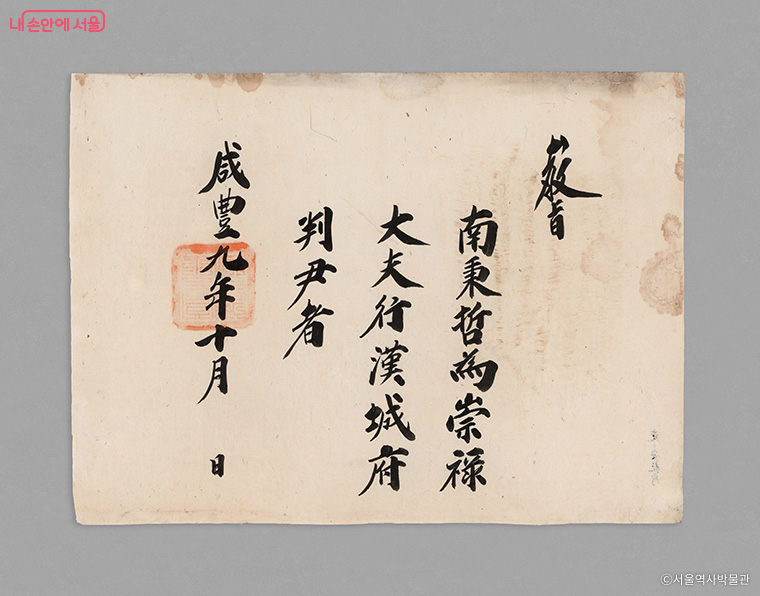 내 손안에 서울
敎旨
南秉哲爲崇祿
大夫行漢城府
判尹者
咸豊九年十月 日
ⓒ서울역사박물관